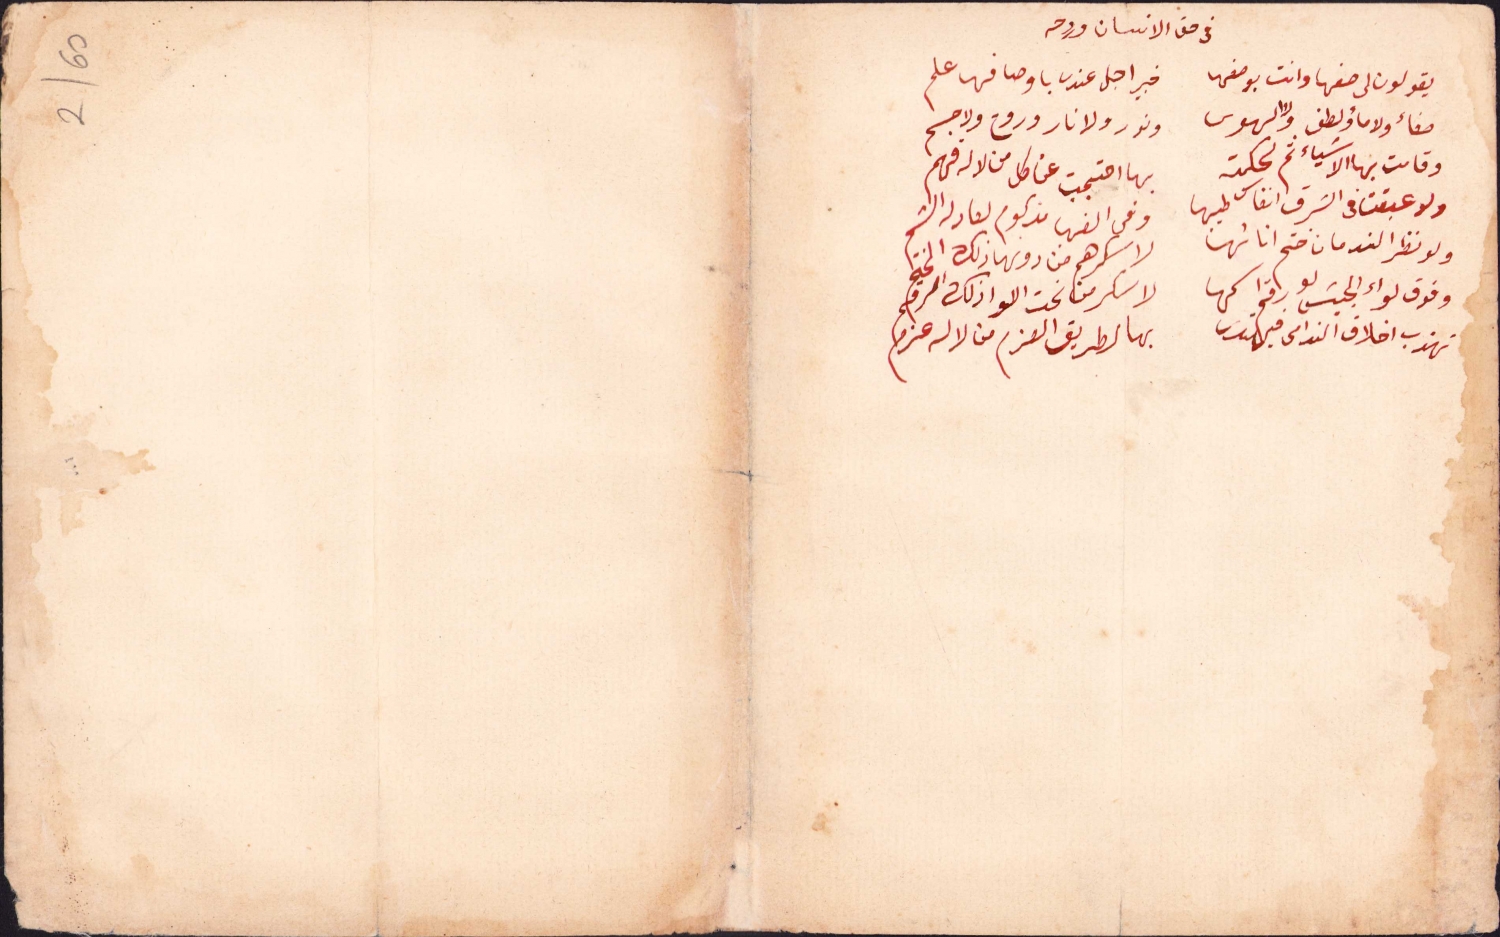 2/60
في حق الانسان وروحه
يقولون لي صفها وانت بوصفها خبير اجل عندي باوصافها علم
صفاء ولا ماء ولطف ولا هوى ونور ولا نار وروح ولا جسم
وقامت بها الاشياء ثم لحكمة بها احتجبت عن كل من لا له فهم
ولو عبقت في الشرق انفاس طيبها وفي الغرب مزكوم لعاد له الشم
ولو نظر الندمان ختم انائها لاسكرهم من دونها ذلك الختم
وفوق لواء الجيش لو رقم اسمها لاسكر من تحت اللوا ذلك الرقم
تهذب اخلاق الندامى فيهتدي بها لطريق العزم من لا له عزم